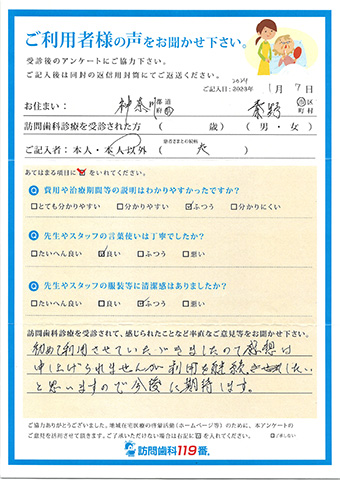 ご利用者様の声をお聞かせ下さい。
受診後のアンケートにご協力下さい。
ご記入後は同封の返信用封筒にてご返送ください。
2024
ご記入日:2023年 1月 7日
お住まい: 神奈川 都道府県 秦野 市区町村
訪問歯科診療を受診された方 ( 歳) (男・女)
ご記入者:本人・本人以外 (患者さまとの関係 夫 )
あてはまる項目に☑をいれてください。
Q 費用や治療期間等の説明はわかりやすかったですか?
□とても分かりやすい □分かりやすい ☑ふつう □分かりにくい
Q 先生やスタッフの言葉使いは丁寧でしたか?
□たいへん良い ☑良い □ふつう □悪い
Q 先生やスタッフの服装等に清潔感はありましたか?
□たいへん良い □良い ☑ふつう □悪い
訪問歯科診療を受診されて、感じられたことなど率直なご意見等をお聞かせ下さい。
初めて利用させていただきましたので感想は
申し上げられませんが利用を継続させましたい
と思いますので今後に期待します。
ご協力ありがとうございました。地域在宅医療の啓蒙活動(ホームページ等)のために、本アンケートの
ご意見を活用させて頂きます。ご了承いただけない場合は右記に☑を入れてください。 □了承しない
訪問歯科119番.